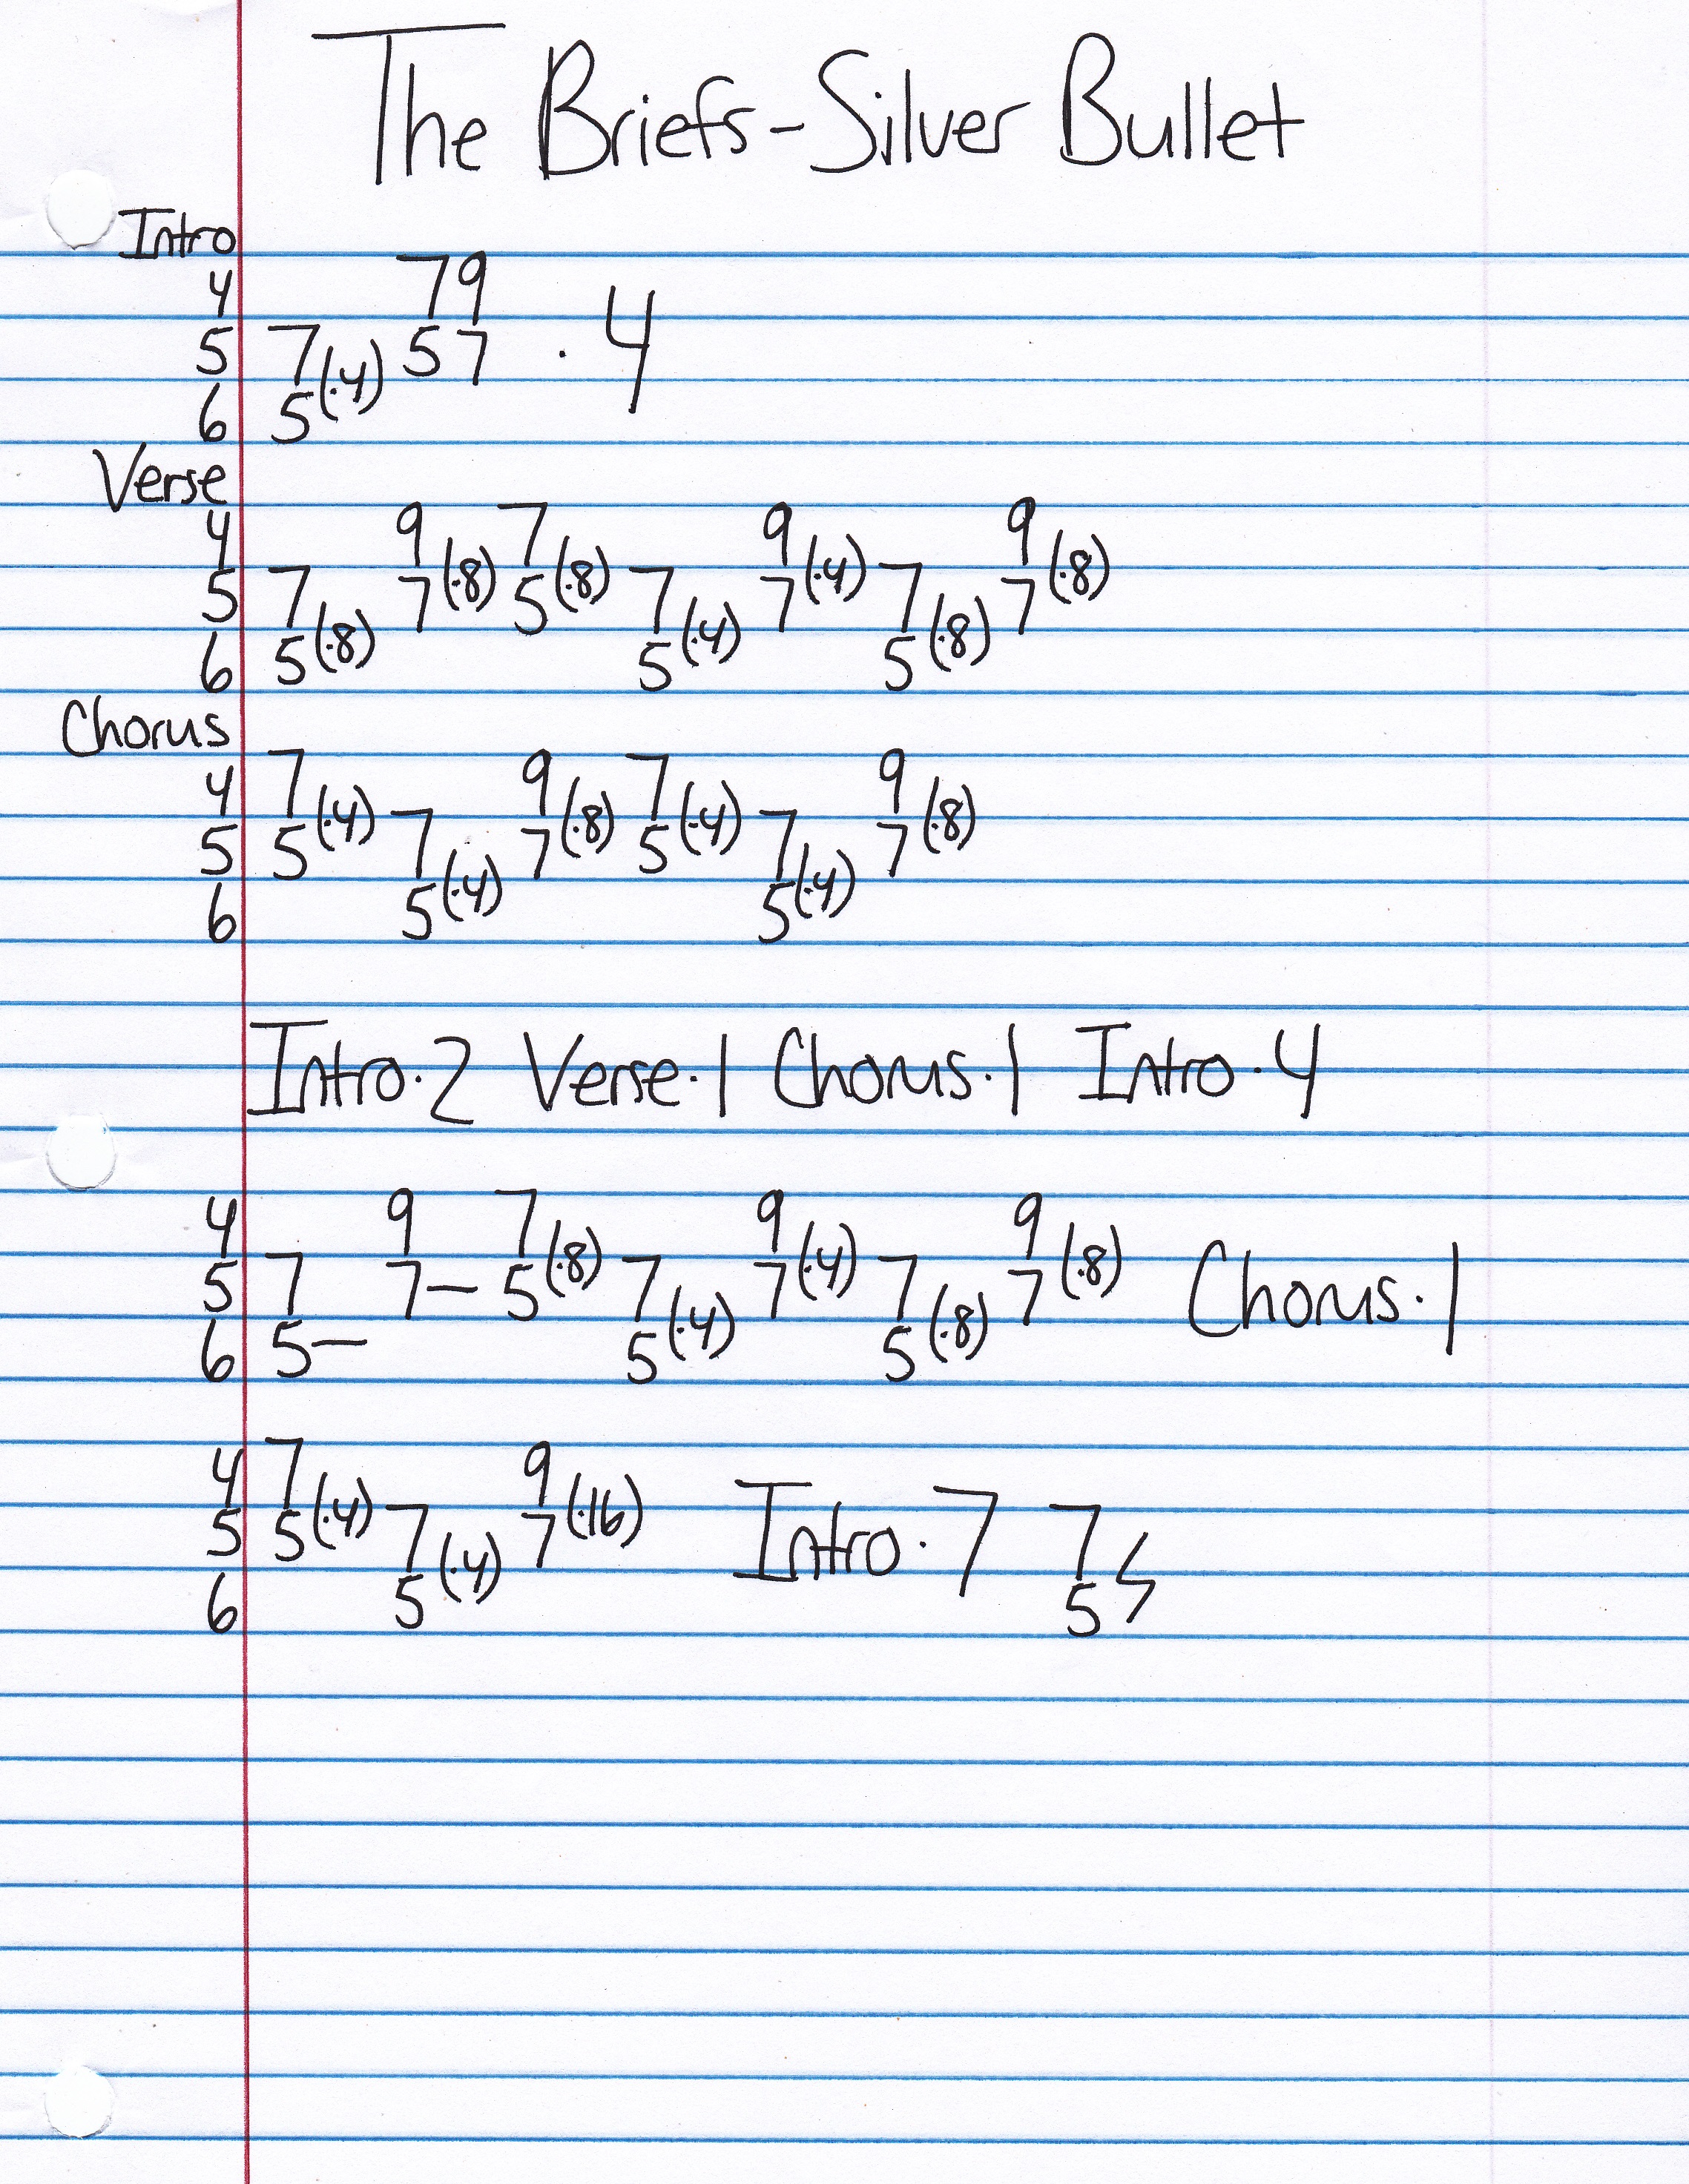 The Briefs - Silver Bullet
Intro
4 7 9
5 7 (·4) 5 7 · 4
6 5
Verse
4 9 7 9 9
5 7 7 (·8) 5 (·8) 7 7 (·4) 7 7 (·8)
6 5 (·8) 5 (·4) 5 (·8)
Chorus
4 7 9 7 9
5 5 (·4) 7 7 (·8) 5 (·4) 7 7 (·8)
6 5 (·4) 5 (·4)
Intro · 2 Verse · 1 Chorus · 1 Intro · 4
4 9 7 9 9
5 7 7 — 5 (·8) 7 7 (·4) 7 7 (·8) Chorus · 1
6 5 — 5 (·4) 5 (·8)
4 7 9
5 5 (·4) 7 7 (·16) Intro · 7 7
6 5 (·4) 5